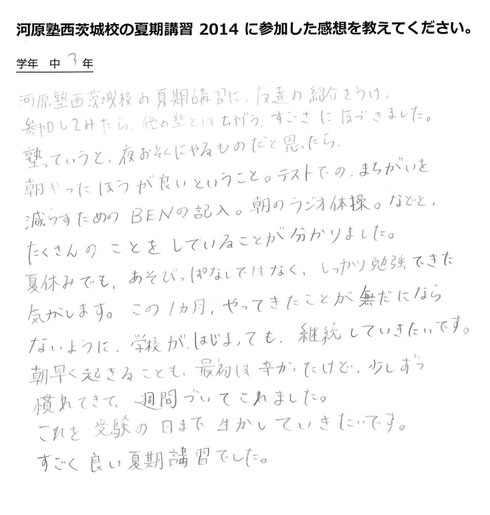 河原塾西茨城校の夏期講習 2014 に参加した感想を教えてください。
学年 中 3 年
河原塾西茨城校の夏期講習に、友達の紹介をうけ、
参加してみたら、他の塾とはちがう、すごさに気づきました。
塾っていうと、夜おそくにやるものだと思ったら、
朝やったほうが良いということ。テストでの、まちがいを
減らすためのBENの記入。朝のラジオ体操。などと、
たくさんのことをしていることが分かりました。
夏休みでも、あそびっぱなしではなく、しっかり勉強できた
気がします。この1カ月、やってきたことが無だになら
ないように、学校がはじまっても、継続していきたいです。
朝早く起きることも、最初は辛かったけど、少しずつ
慣れてきて、週間づいてこれました。
これを受験の日まで生かしていきたいです。
すごく良い夏期講習でした。